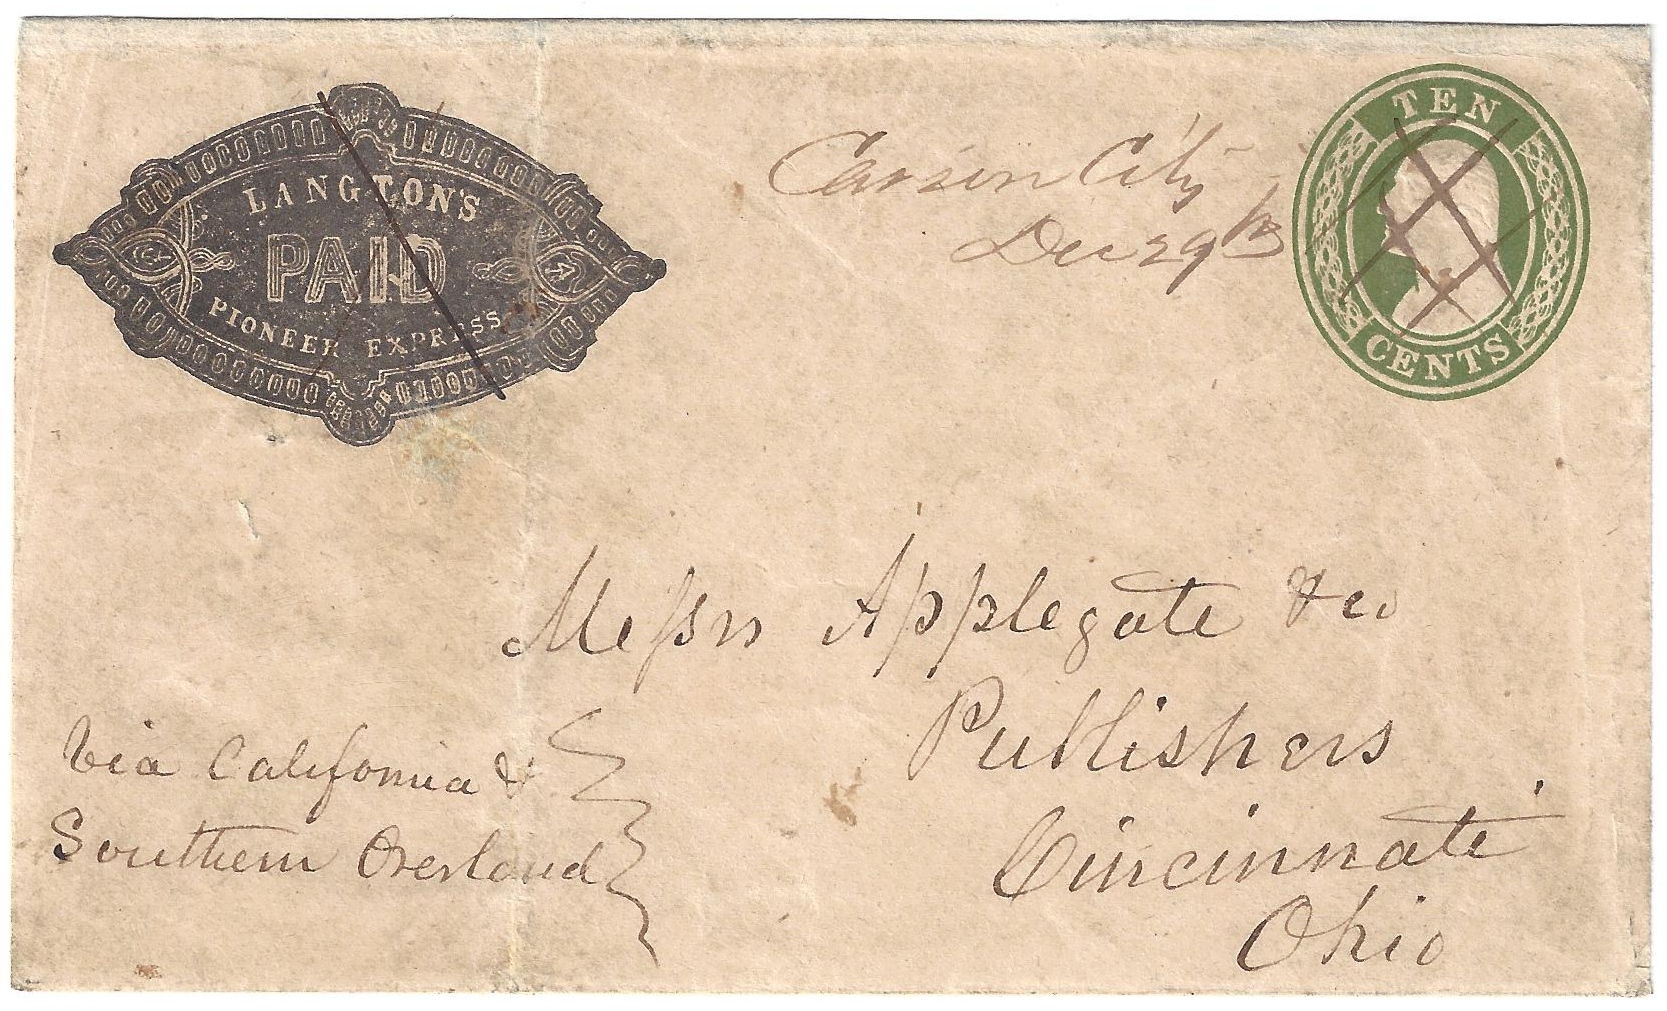 LANGTON'S
PAID
PIONEER EXPRESS
TEN
CENTS
Carson City
Dec 29
Messrs Applegate & co
Publishers
Cincinnati
Ohio
Via California &
Southern Overland